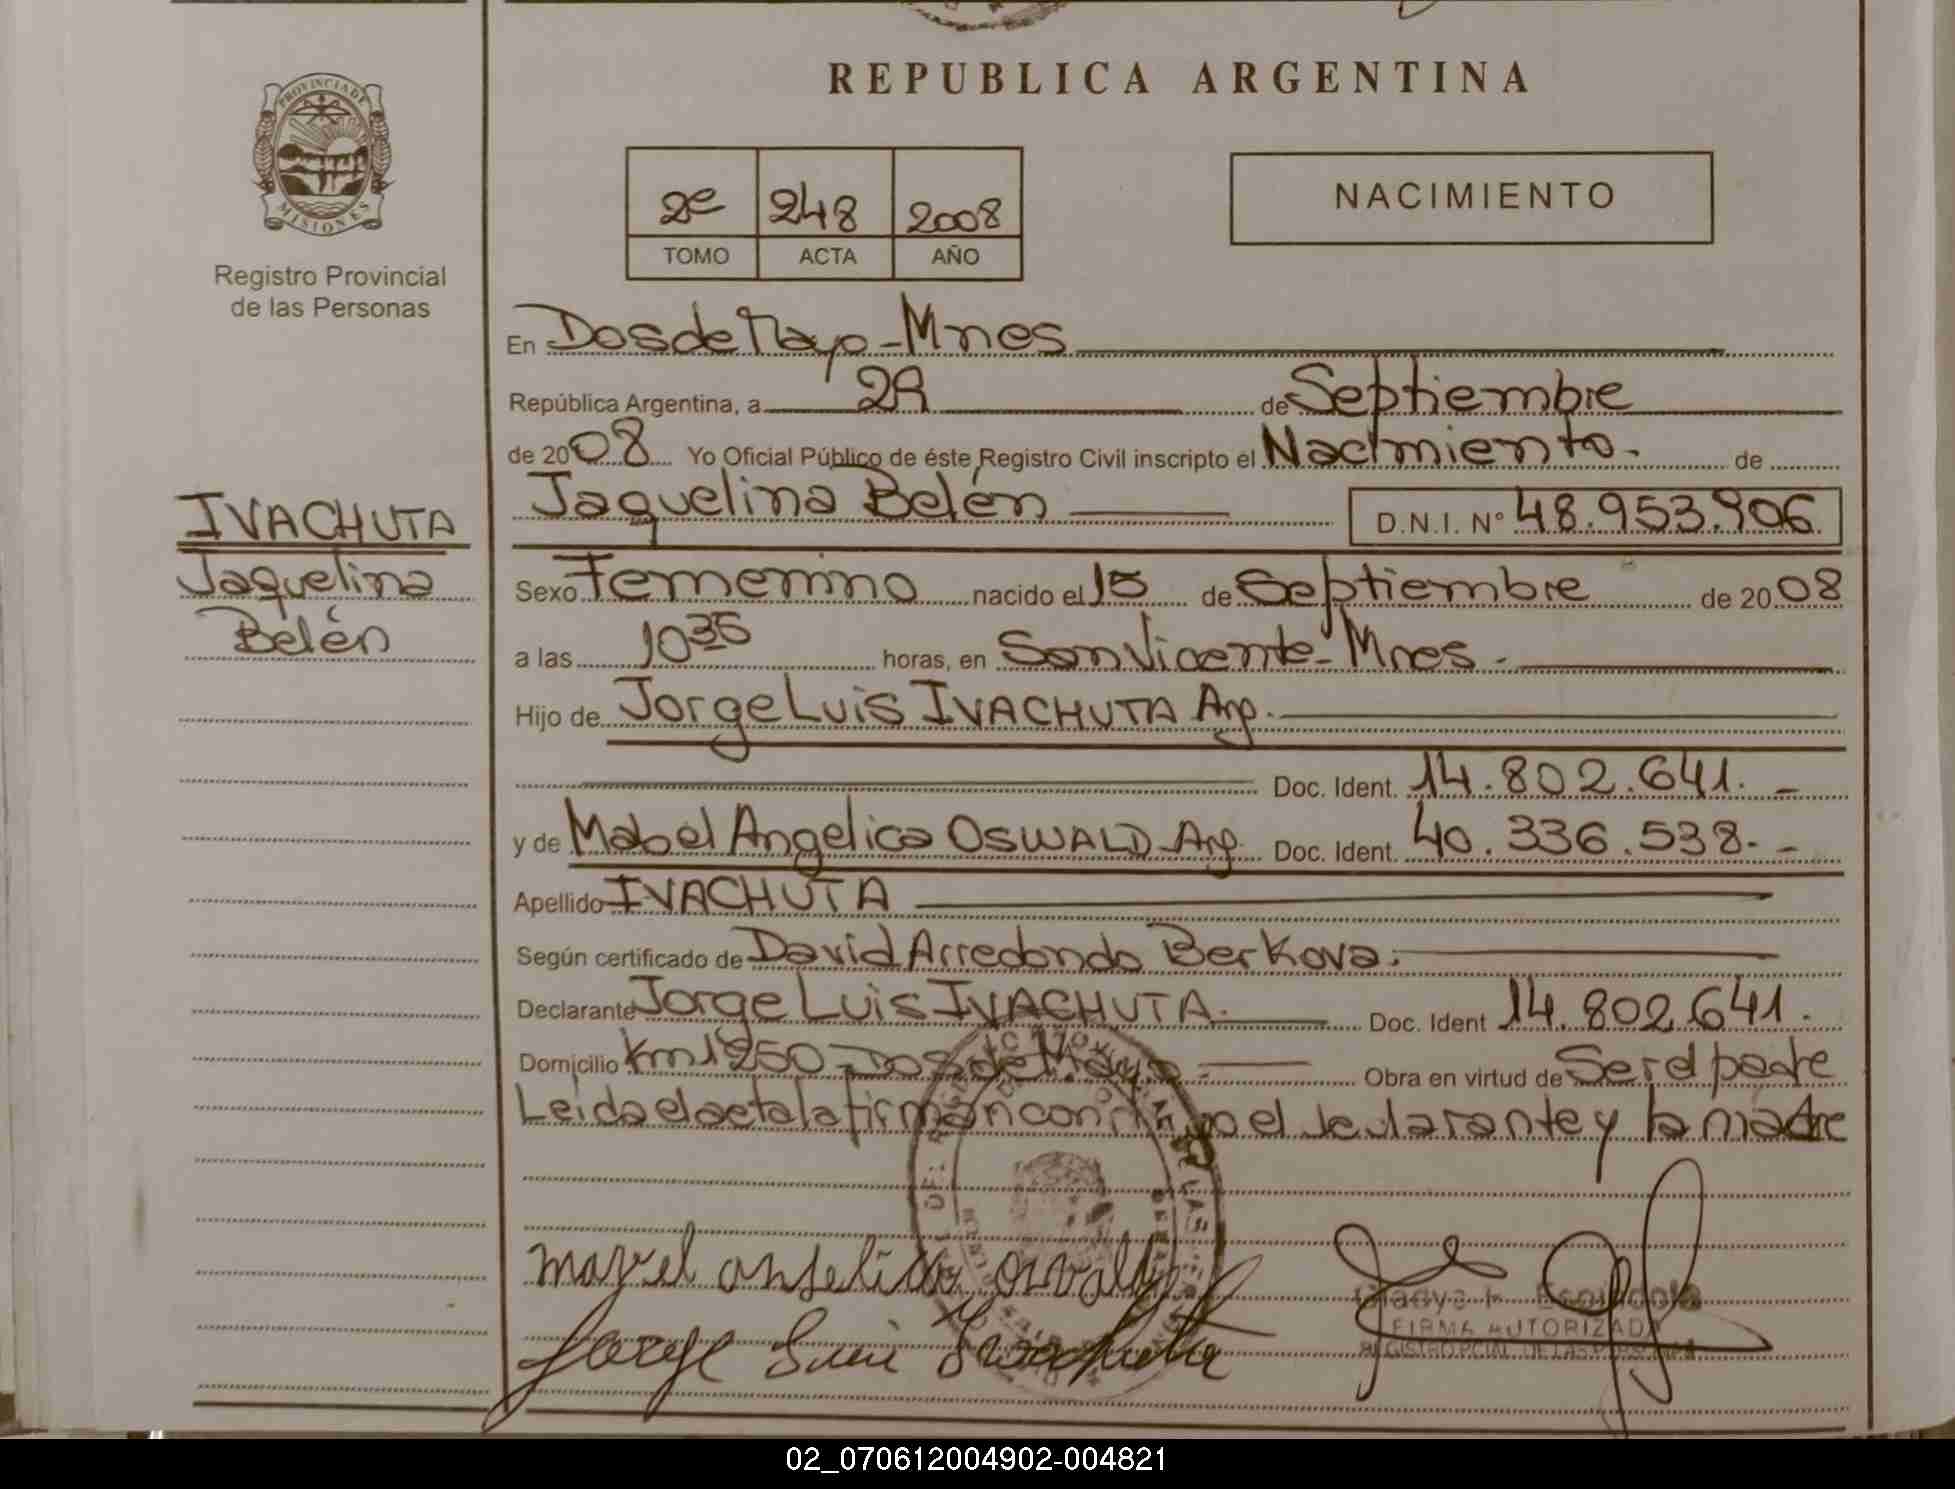 REPUBLICA ARGENTINA
PROVINCIA DE
MISIONES
Registro Provincial
de las Personas
2e 248 2008
TOMO ACTA AÑO
NACIMIENTO
En Dos de Mayo - Mnes
República Argentina, a 29 de Septiembre
de 2008 Yo Oficial Público de éste Registro Civil inscripto el Nacimiento. de
Jaquelina Belén D.N.I. N° 48.953.906
IVACHUTA
Jaquelina
Belén
Sexo Femenino nacido el 15 de Septiembre de 2008
a las 10 35 horas, en San Vicente - Mnes.
Hijo de Jorge Luis IVACHUTA Arg.
Doc. Ident. 14.802.641. -
y de Mabel Angelica OSWALD Arg. Doc. Ident. 40.336.538. -
Apellido IVACHUTA
Según certificado de David Arredondo Berkova.
Declarante Jorge Luis IVACHUTA. Doc. Ident 14.802.641.
Domicilio Km 1250 - Dos de Mayo. Obra en virtud de Ser el padre
Leida el acta la firman conmigo el declarante y la madre
mavel anselica osvald
Jorge Luis Ivachuta
FIRMA AUTORIZADA
REGISTRO PCIAL. DE LAS PERSONAS
02_070612004902-004821